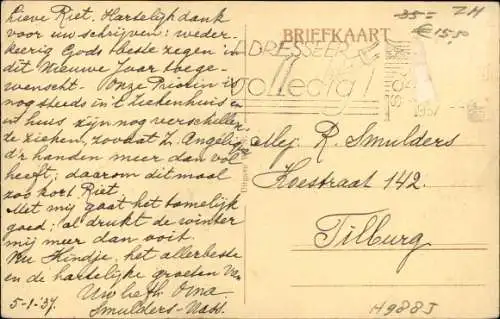 Lieve Riet. Hartelijk dank
voor uw schrijven: weder-
keerig Gods beste zegen in
dit Nieuwe Jaar toege-
wenscht. Onze Priorin is
nog steeds in 't Ziekenhuis en
in huis zijn nog verscheidene
te zieken, zoodat Z. Angelique
d'r handen meer dan vol
heeft; daarom ditmaal
zoo kort Riet.
Met mij gaat het tamelijk
goed; al drukt de winter
mij meer dan ooit
Nu Kindje, het allerbeste
en de hartelijke groeten van
Uw liefh. Oma
5-1-37. Smulders-
BRIEFKAART
ADRESSEER
volledig!
1937
35=
ZH
€15.50
Mej. R. Smulders
Koestraat 142.
Tilburg
H988J